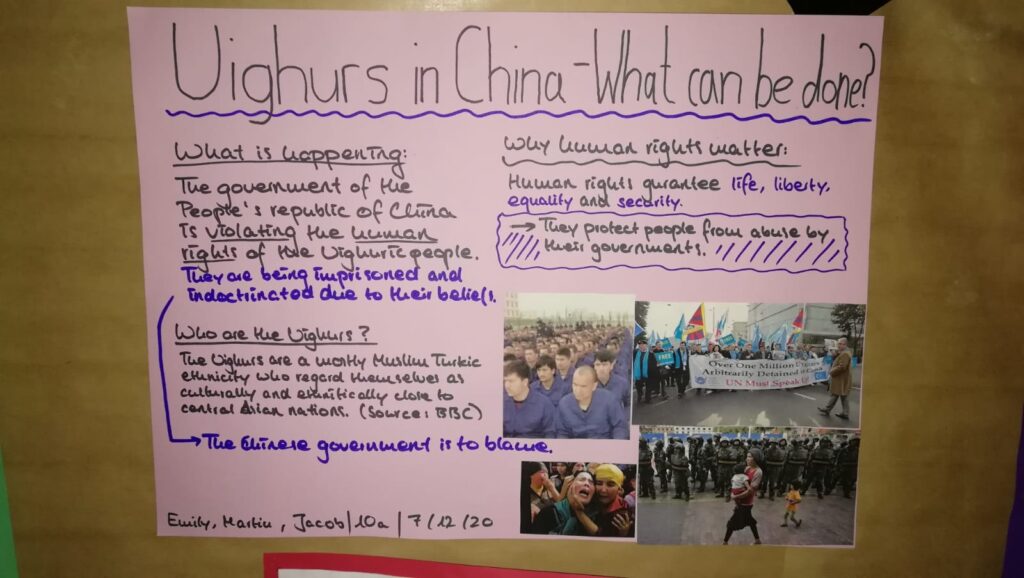 Uighurs in China - What can be done?
What is happening:
The government of the
People's republic of China
is violating the human
rights of the Uighuric people.
They are being imprisoned and
indoctrinated due to their beliefs.
Who are the Uighurs?
The Uighurs are a mostly Muslim Turkic
ethnicity who regard themselves as
culturally and ethnitically close to
central Asian nations. (Source: BBC)
→ The Chinese government is to blame.
Emily, Martin, Jacob | 10a | 7/12/20
Why human rights matter:
Human rights gurantee life, liberty,
equality and security.
→ They protect people from abuse by
their governments.
FREE
Over One Million
Arbitrarily Detained in
UN Must Speak